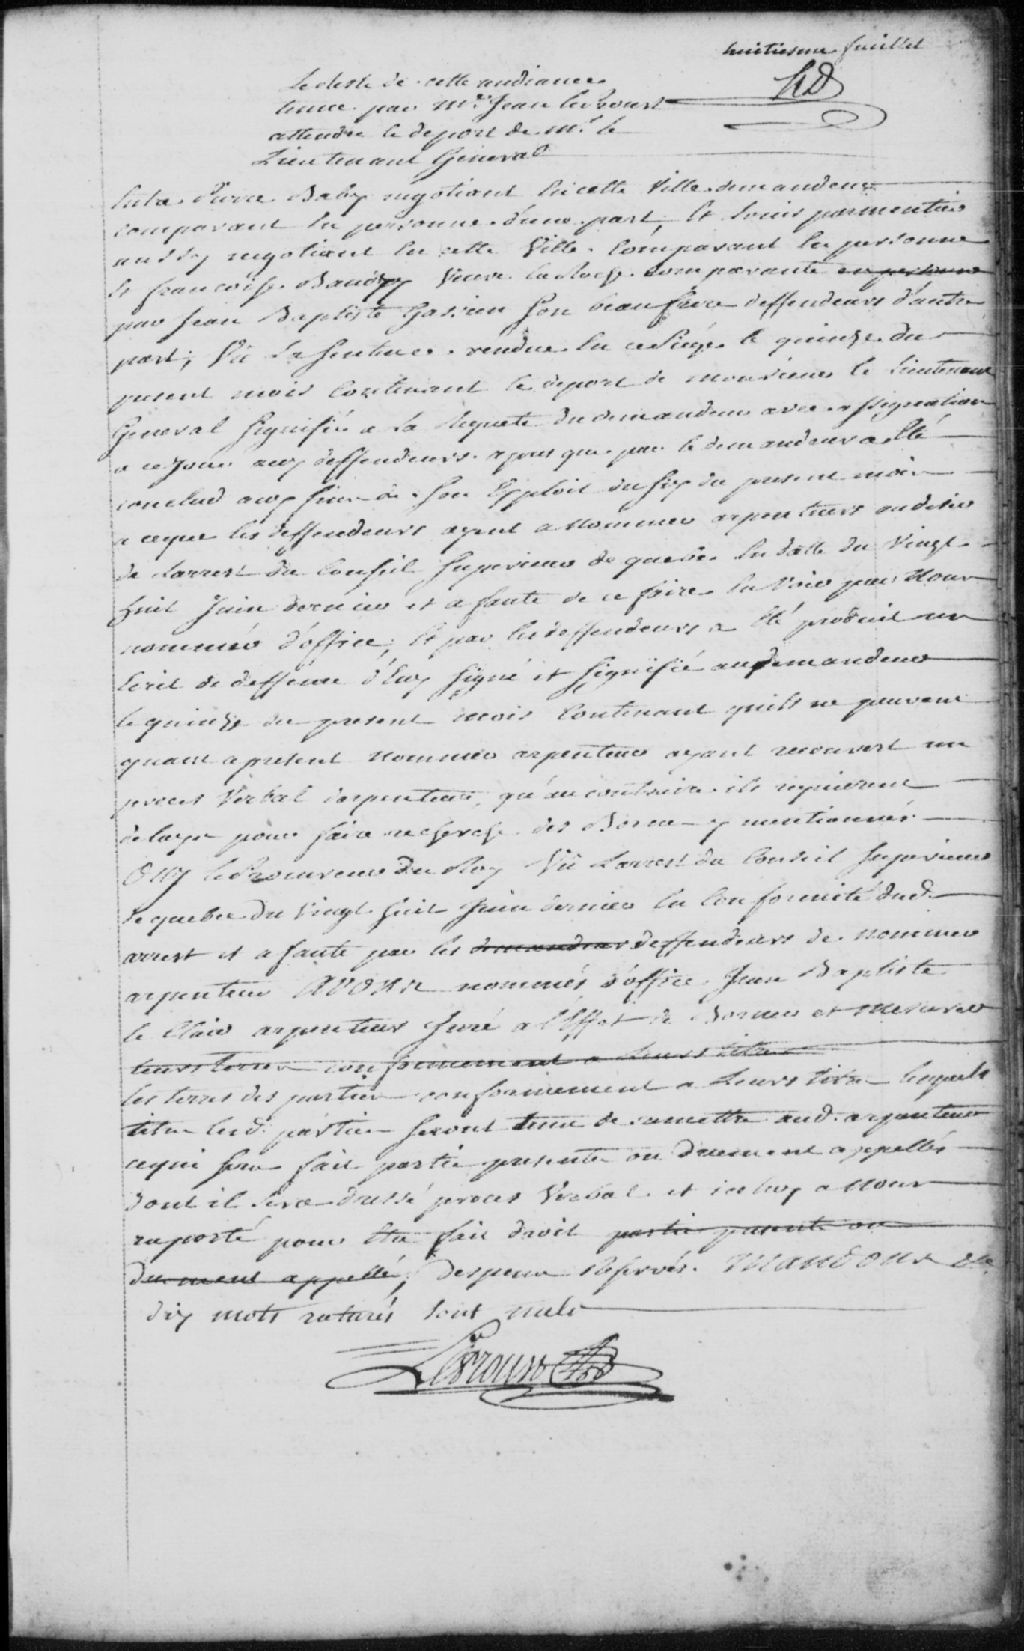 huitiesme feuillet
Le reste de cette audiance
tenue par Mr. Jean le Proust
attendu le deport de Mr. le
Lieutenant General
Entre Pierre Baby negotiant de cette Ville demandeur
comparant en personne d'une part, Et Louis parmentier
aussy negotiant en cette Ville Comparant en personne
et françoise Baudry Veuve comparante en personne
par Jean Baptiste son beau frere deffendeurs d'autre
part; Vü la sentence rendüe en ce siége le quinze du
present mois contenant le deport de monsieur le Lieutenant
General signifiée a la Requete du demandeur avec assignation
a ce jour aux deffendeurs apres que par le demandeur a Eté
conclud aux fins de son Exploit du six du present mois
a ceque les deffendeurs ayent a Nommer arpenteurs au desir
de Larrest du Conseil Superieur de quebec En datte du Vingt
huit Juin dernier et a faute de ce faire En Voir par Nous
nommer d'office; Et par les deffendeurs a Eté produit un
Ecrit de deffense d'Eux signé et signifié au demandeur
le quinze du present mois Contenant quils ne peuvent
quant a present nommer arpenteur ayant recouvert un
proces Verbal d'arpenteur, qu'au contraire ils requierent
delaye pour faire recherche des Borne y mentionnés
Ouy le Procureur du Roy Vü Larrest du Conseil Superieur
de quebec du Vingt huit Juin dernier En Conformité dud.
arrest et a faute par les demandeurs deffendeurs de nommer
arpenteur AVONS nommés d'office Jean Baptiste
le Clair arpenteur Juré a l'Effet de Borner et Mesurer
leurs terres conformement a Leurs titres
les terres des parties conformement a Leurs titres lesquels
titres lesd. parties seront tenue de remettre aud. arpenteur
cequi sera fait partie presente ou duement appellés
dont il sera dressé proces Verbal et iceluy a Nous
raporté pour Etre fait droit partie presente ou
duement appellé; Despens reservés. MANDONS &c.
dix mots raturés sont nuls
LeProust